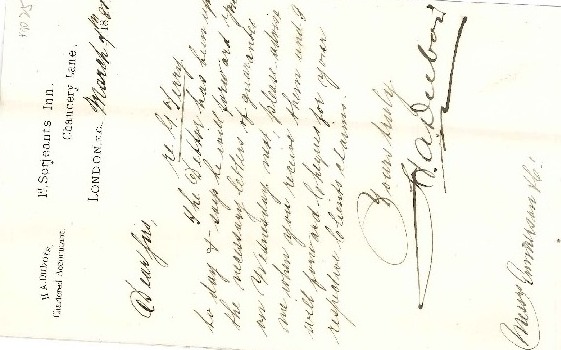 H.A. Dubois,
Chartered Accountant.
F. Serjeants Inn.
Chancery Lane,
LONDON, E.C. March 9th 188
Dear Sirs,
re G. Terry
The Debtor has been up
to day & says he will forward you
the necessary letters of guarantee
on Wednesday next, please advise
me when you receive them and I
will forward cheques for your
respective clients claims.
Yours truly.
H.A. Dubois
Messrs Emmerson & Co.